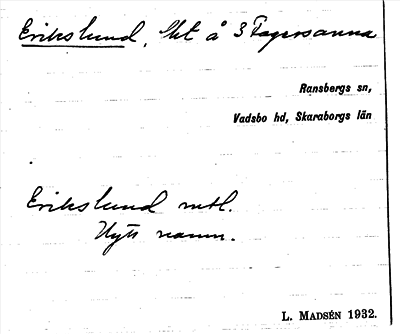 Erikslund, lht å 3 Fagersanna
Ransbergs sn,
Vadsbo hd, Skaraborgs län
Erikslund mtl.
Nytt namn.
L. MADSÉN 1932.